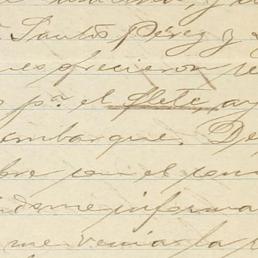 Santos Pérez y
ofrecieron
pª. el flete, ay
embarque. De
bre con el con
dome informa
me venia la p